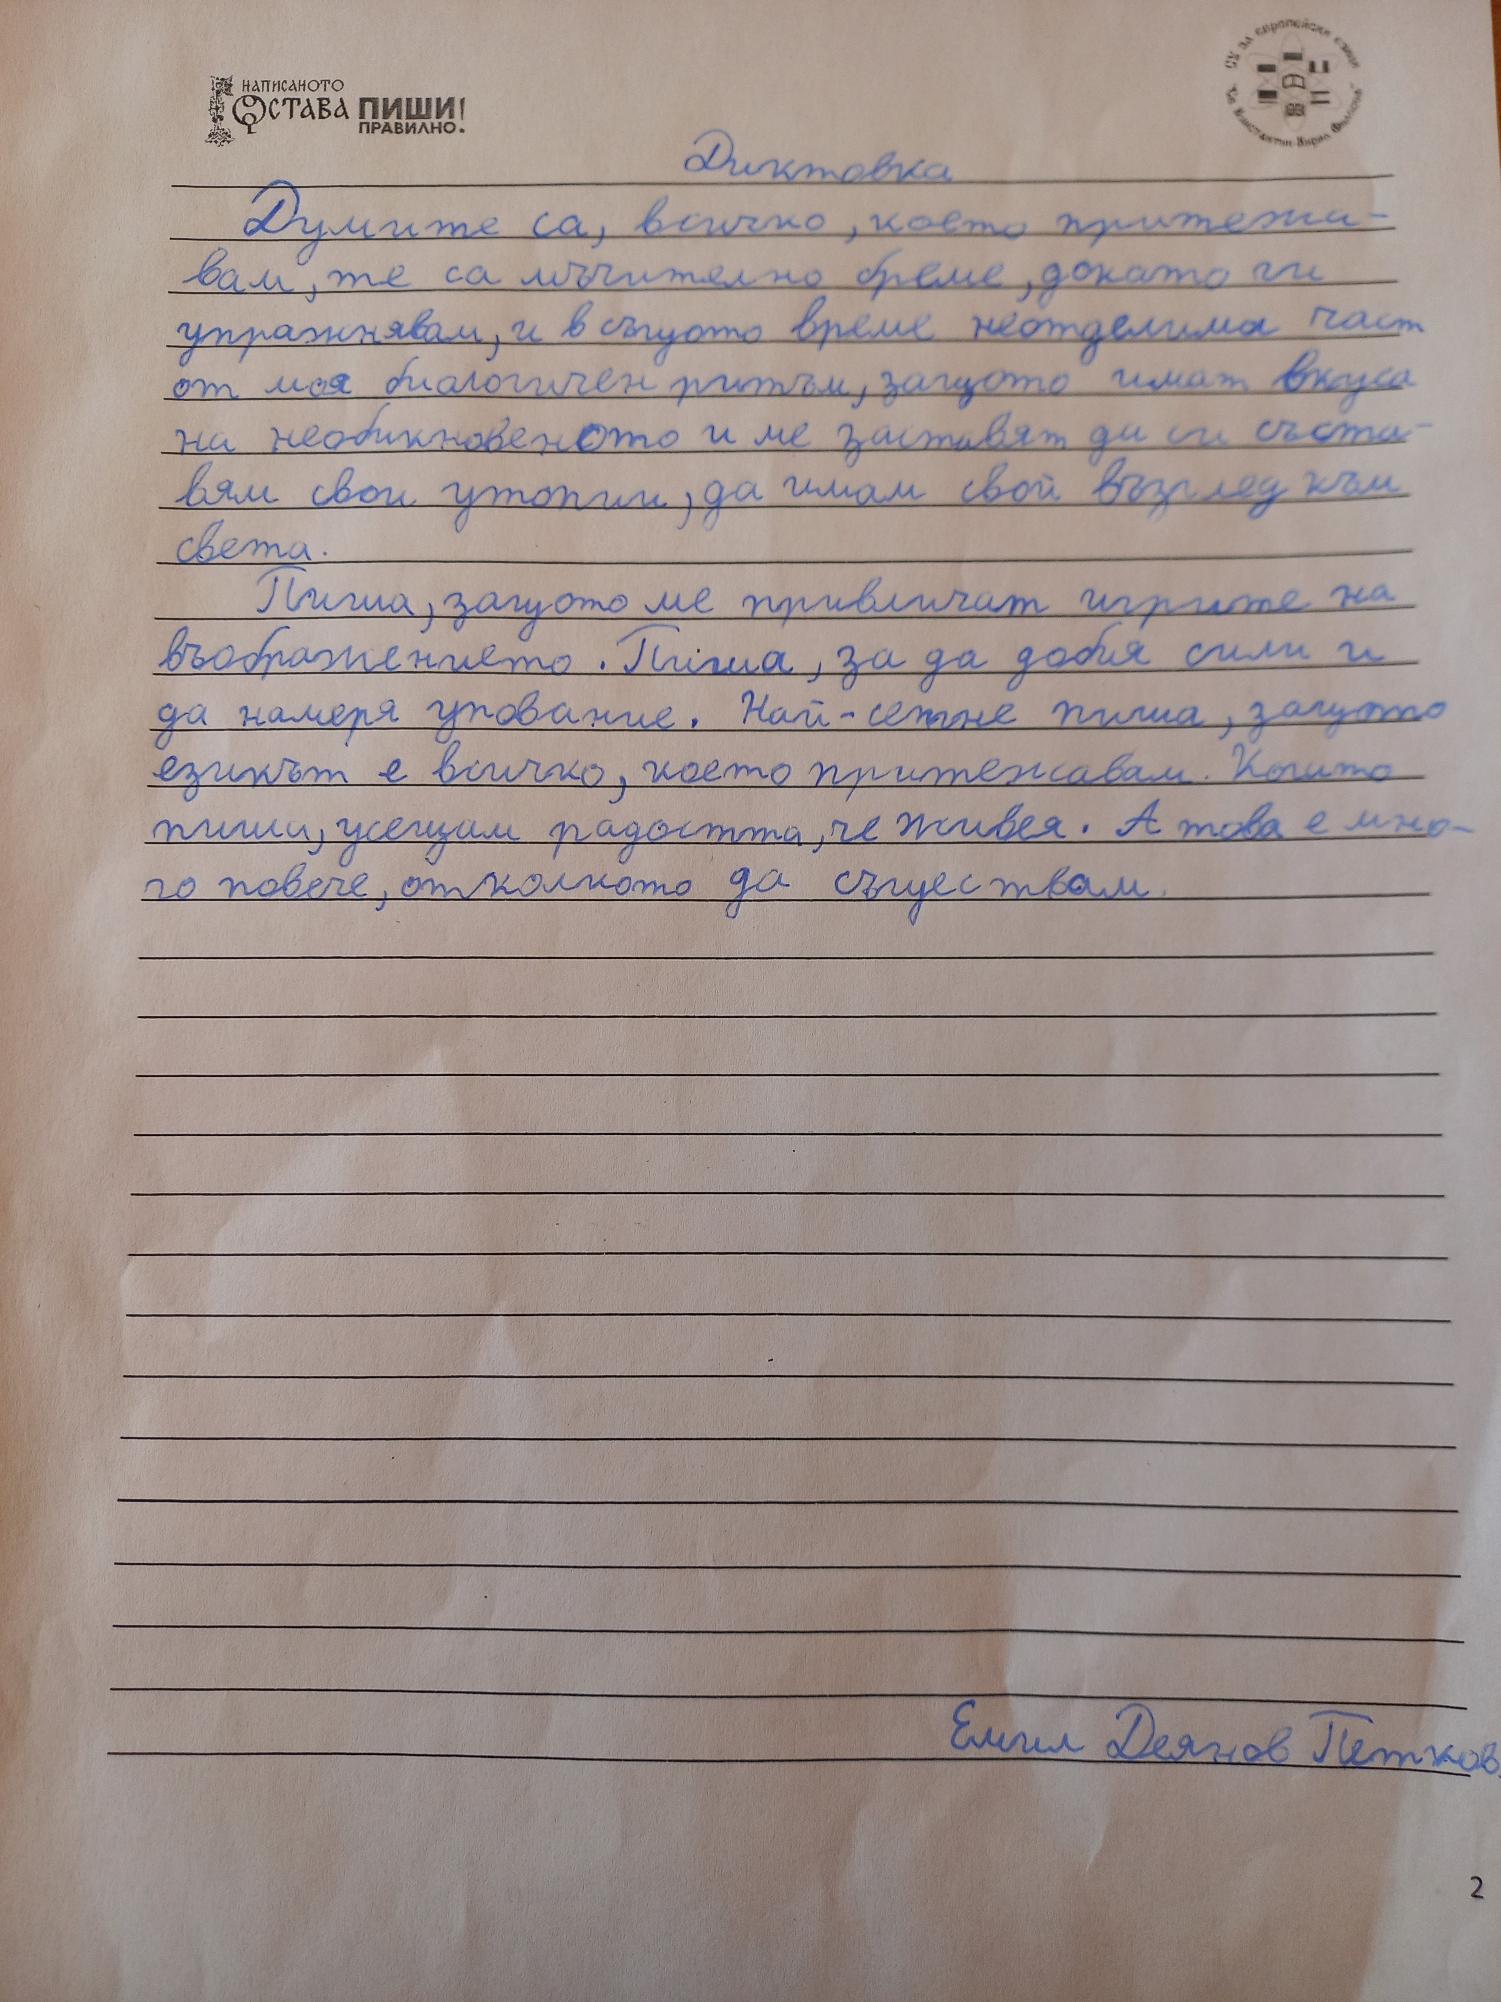 НАПИСАНОТО
ОСТАВА ПИШИ!
ПРАВИЛНО.
Диктовка
Думите са, всичко, което притежа-
вам, те са мъчително бреме, докато ги
упражнявам, и в същото време неотделима част
от моя биологичен ритъм, защото имат вкуса
на необикновеното и ме заставят да си съста-
вям свои утопии, да имам свой възглед към
света.
Пиша, защото ме привличат игрите на
въображението. Пиша, за да добия сили и
да намеря упование. Най-сетне пиша, защото
езикът е всичко, което притежавам. Когато
пиша, усещам радостта, че живея. А това е мно-
го повече, отколкото да съществам.
Емил Деянов Петков
2